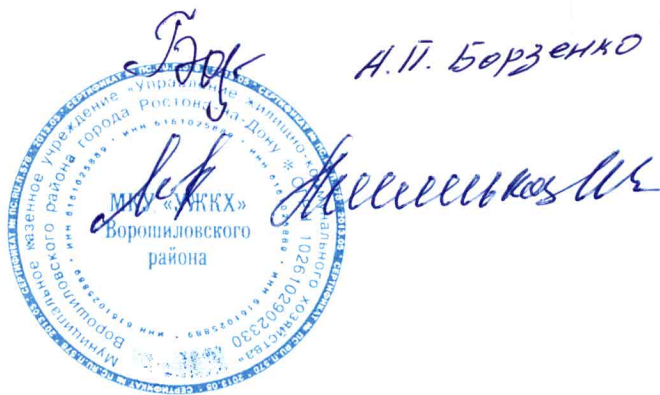 А.П. Борзенко
СЕРТИФИКАТ № ПС.RU.П.570 · 2013.05
Муниципальное казенное учреждение «Управление жилищно-коммунального хозяйства»
Ворошиловского района города Ростова-на-Дону * ОГРН 1026102902330
ИНН 6161025889
МКУ «УЖКХ»
Ворошиловского
района